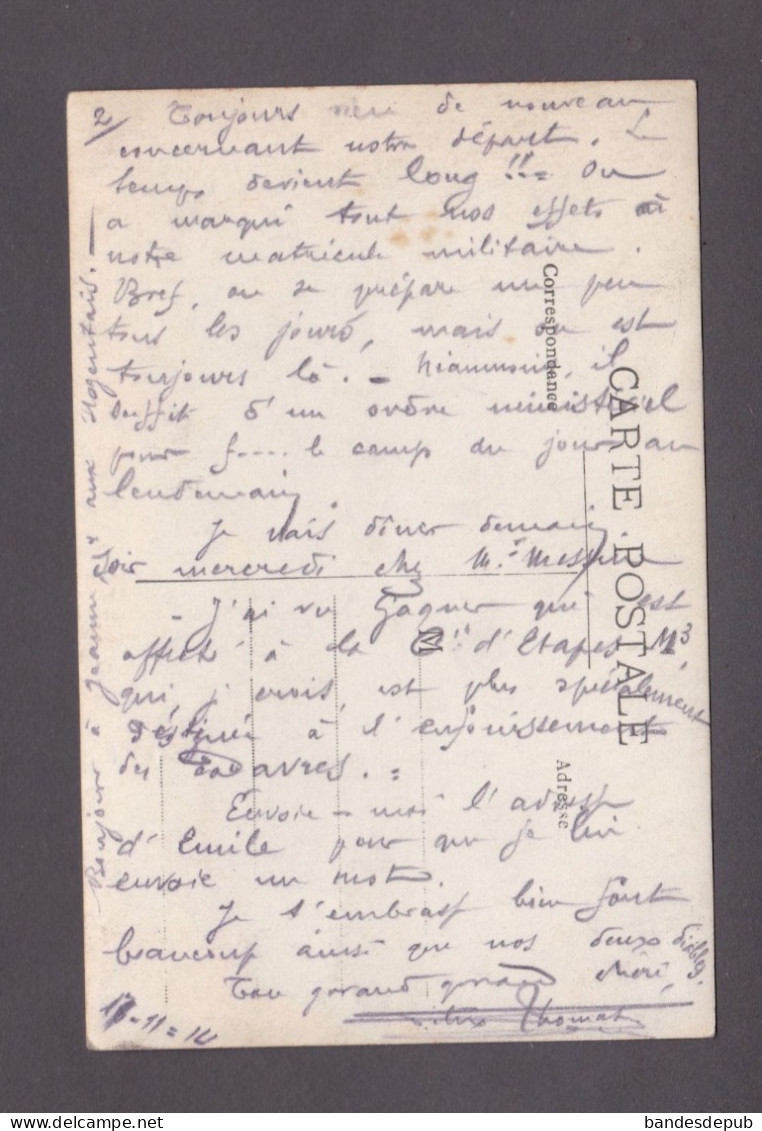 2/ Toujours rien de nouveau
concernant notre départ. Le
temps devient long !! = On
a marqué tout nos effets à
notre matricule militaire.
Bref, on se prépare un peu
tous les jours, mais on est
toujours là. - Néanmoins, il
suffit d'un ordre ministériel
pour f.... le camp du jour au
lendemain.
Je vais dîner demain
soir mercredi chez Mr
- J'ai vu Gagner qui est
affecté à la d'Etapes No 3,
qui, je crois, est plus spécialement
destinée à l'enfouissement
des cadavres. =
Envoie-moi l'adresse
d'Emile pour que je lui
envoie un mot.
Je t'embrasse bien fort
beaucoup ainsi que nos deux diables.
Ton grand grand chéri,
Thomas
17-11=14
Bonjour à Jeanne et aux Nogentais. -
Correspondance
CARTE POSTALE
Adresse
bandesdepub